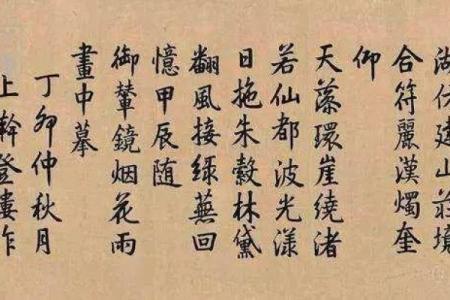 湖仗建山莊境
合符麗漢燭奎
仰
天藻環崖繞渚
若仙都波光漾
日拖朱轂林黛
翻風接綠蕪回
憶甲辰随
御輦鏡烟花雨
畫中摹
丁卯仲秋月
上幹登樓作